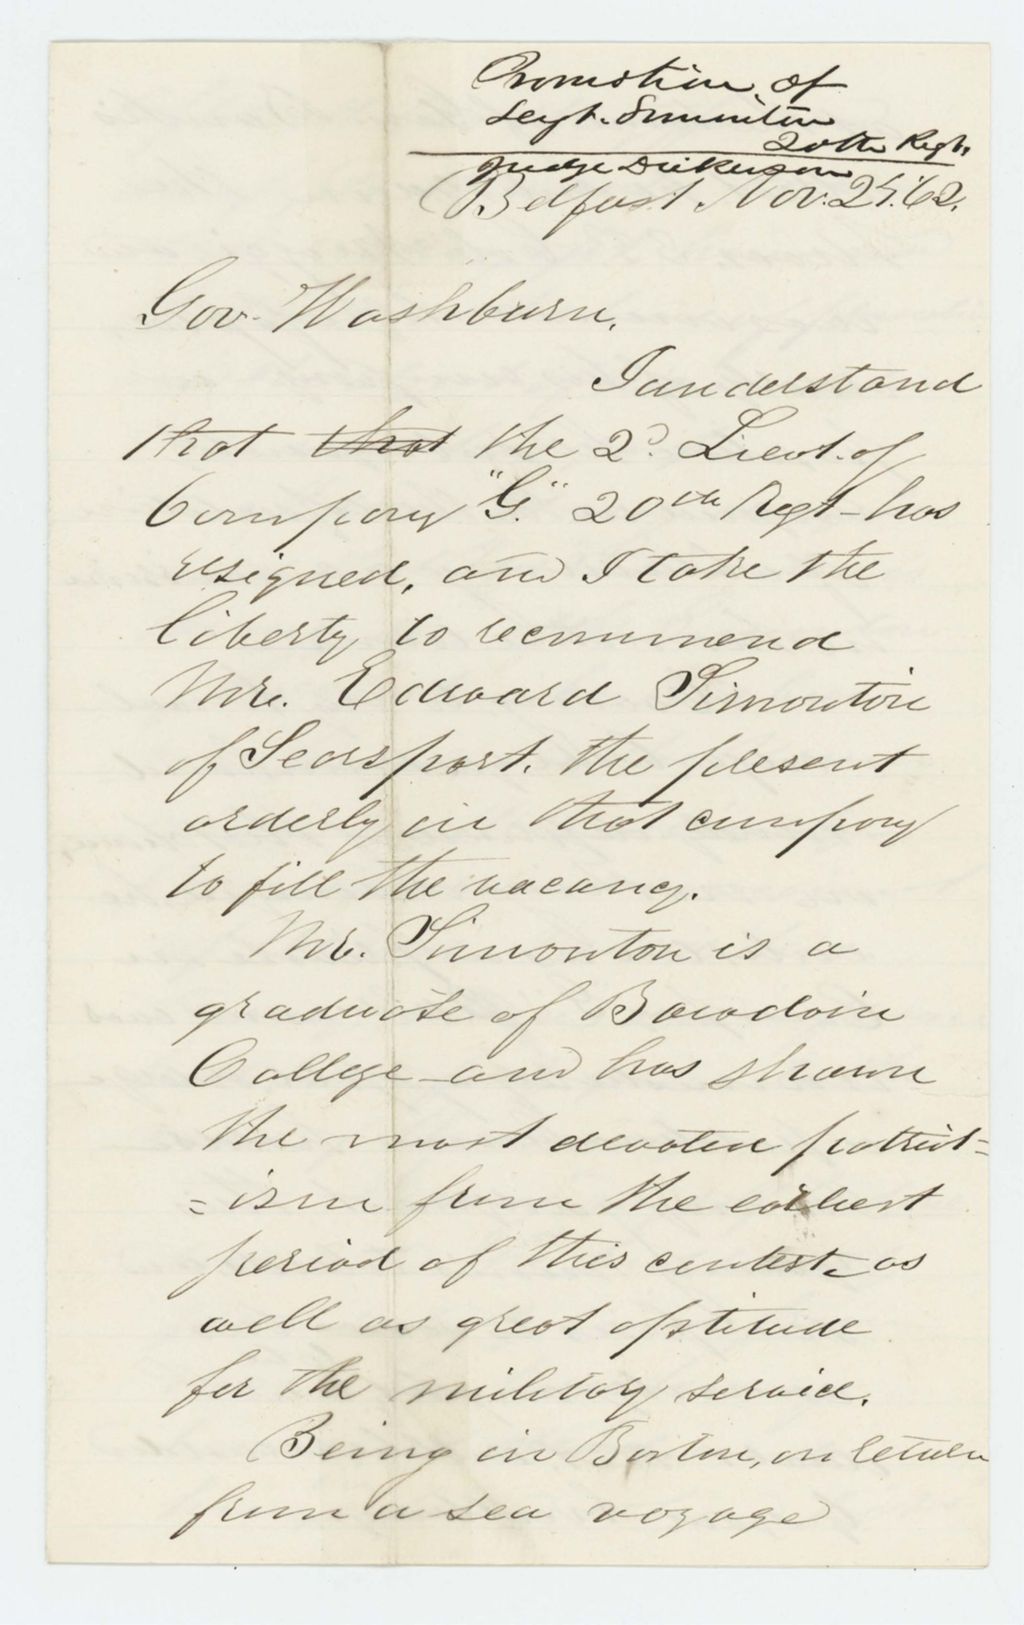 Promotion of
Sergt. Simonton
20th Regt.
Judge Dickerson
Belfast, Nov. 25. '62.
Gov. Washburn,
I understand
that that the 2d. Lieut. of
Company "G." 20th Regt - has
resigned, and I take the
liberty to recommend
Mr. Edward Simonton
of Searsport, the present
orderly in that company
to fill the vacancy.
Mr. Simonton is a
graduate of Bowdoin
College - and has shown
the most devoted patriot=
=ism from the earliest
period of this contest - as
well as great aptitude
for the military service.
Being in Boston, on return
from a sea voyage